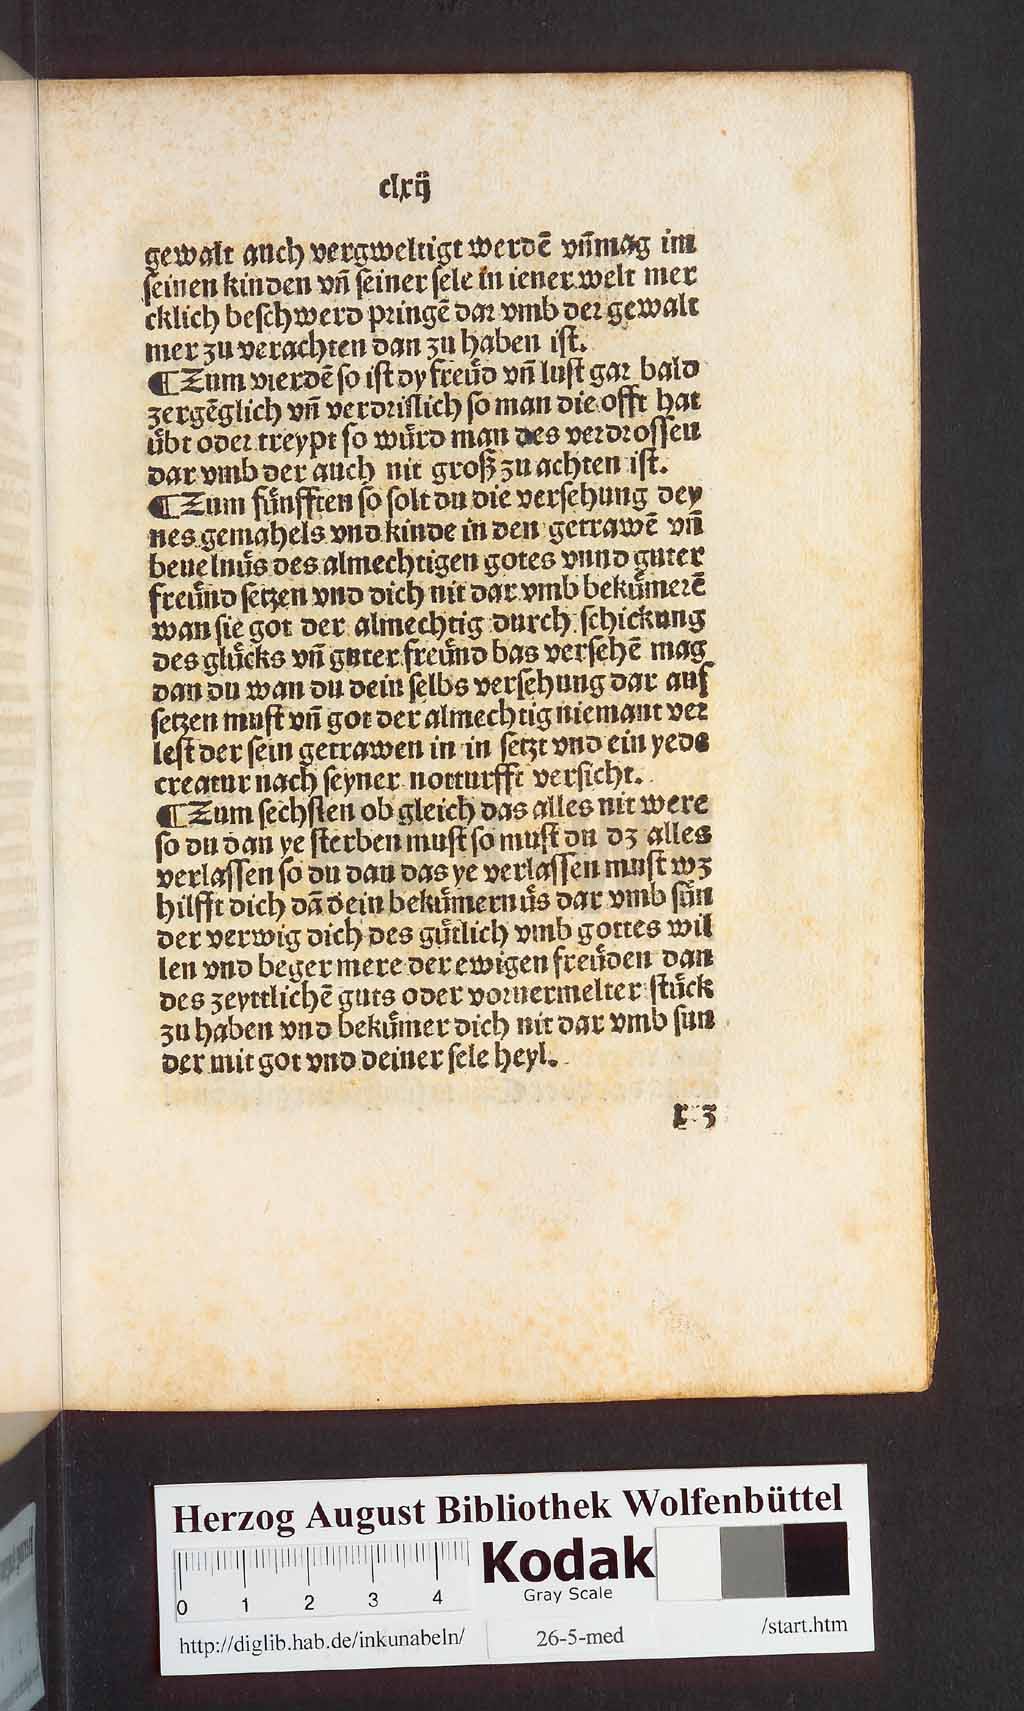 clxij
gewalt auch vergweltigt werdē vn̄mag im
seinen kinden vn̄ seiner sele in iener welt mer
cklich beschwerd pringē dar vmb der gewalt
mer zu verachten dan zu haben ist.
¶Zum vierdē so ist dy freuͤd vn̄ lust gar bald
zergēglich vn̄ verdrislich so man die offt hat
uͤbt oder treypt so wuͤrd man des verdrossen
dar vmb der auch nit groß zu achten ist.
¶Zum fuͤnfften so solt du die versehung dey
nes gemahels vnd kinde in den getrawē vn̄
beuelnuͤs des almechtigen gotes vnnd guter
freuͤnd setzen vnd dich nit dar vmb bekuͤmerē
wan sie got der almechtig durch schickung
des gluͤcks vn̄ guter freuͤnd bas versehē mag
dan du wan du dein selbs versehung dar auf
setzen must vn̄ got der almechtig niemant ver
lest der sein getrawen in in setzt vnd ein yede
creatur nach seyner notturfft versicht.
¶Zum sechsten ob gleich das alles nit were
so du dan ye sterben must so must du dz alles
verlassen so du dan das ye verlassen must wz
hilfft dich dā dein bekuͤmernuͤs dar vmb suͤn
der verwig dich des guͤtlich vmb gottes wil
len vnd beger mere der ewigen freuͤden dan
des zeyttlichē guts oder vornermelter stuͤck
zu haben vnd bekuͤmer dich nit dar vmb sun
der mit got vnd deiner sele heyl.
x 3
Herzog August Bibliothek Wolfenbüttel
Kodak
Gray Scale
0 1 2 3 4
http://diglib.hab.de/inkunabeln/
26-5-med
/start.htm